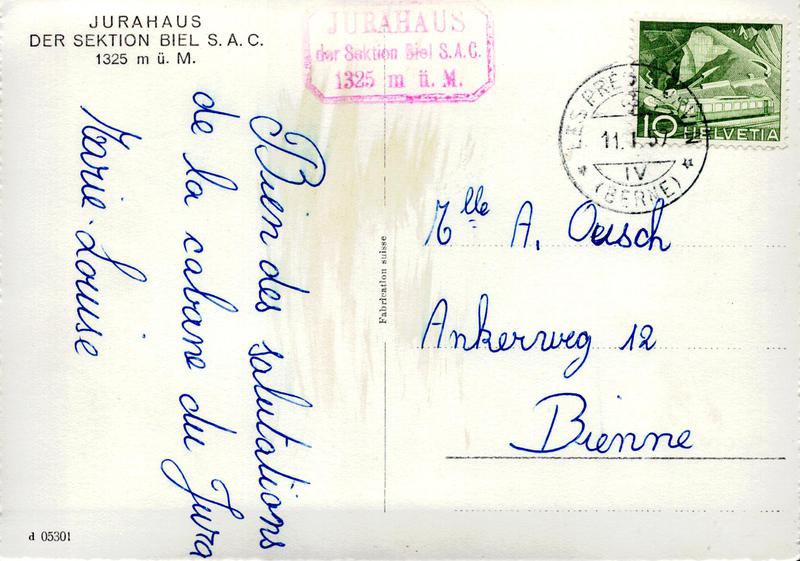 JURAHAUS
DER SEKTION BIEL S.A.C.
1325 m ü. M.
JURAHAUS
der Sektion Biel S.A.C.
1325 m ü. M.
10 HELVETIA
LES PRÉS
11.
IV
(BERNE)
Bien des salutations
de la cabane du Jura
Marie-Louise
Fabrication suisse
Mlle A. Oesch
Ankerweg 12
Bienne
d 05301